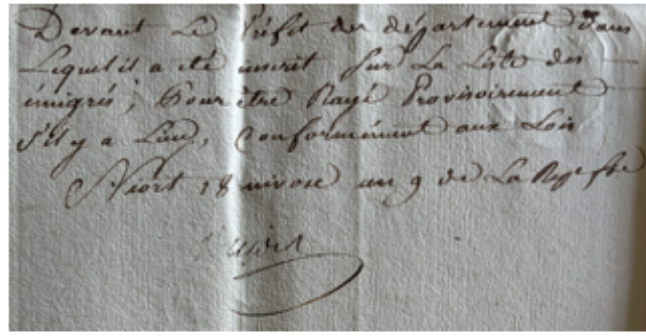 Devant Le Préfet du département dans
Lequel il a été inscrit Sur La Liste des
émigrés; Pour être Rayé Provisoirement
S'il y a Lieu, Conformément aux Lois
Niort 18 nivose an 9 de La Rep. fse